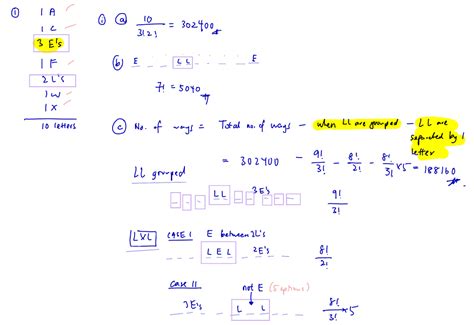 ① 1 A
1 C
3 E's
1 F
2 L's
1 W
1 X
10 letters
① ⓐ 10! / 3!2! = 302400
ⓑ E LL E
7! = 5040
ⓒ No. of ways = Total no. of ways - when LL are grouped - LL are separated by 1 letter
= 302400 - 9!/3! - 8!/2! - 8!/3! × 5 = 188160
LL grouped
LL 3E's 9!/3!
LXL CASE I E between 2L's
L E L 2E's 8!/2!
CASE II not E (5 options)
3E's L L 8!/3! × 5